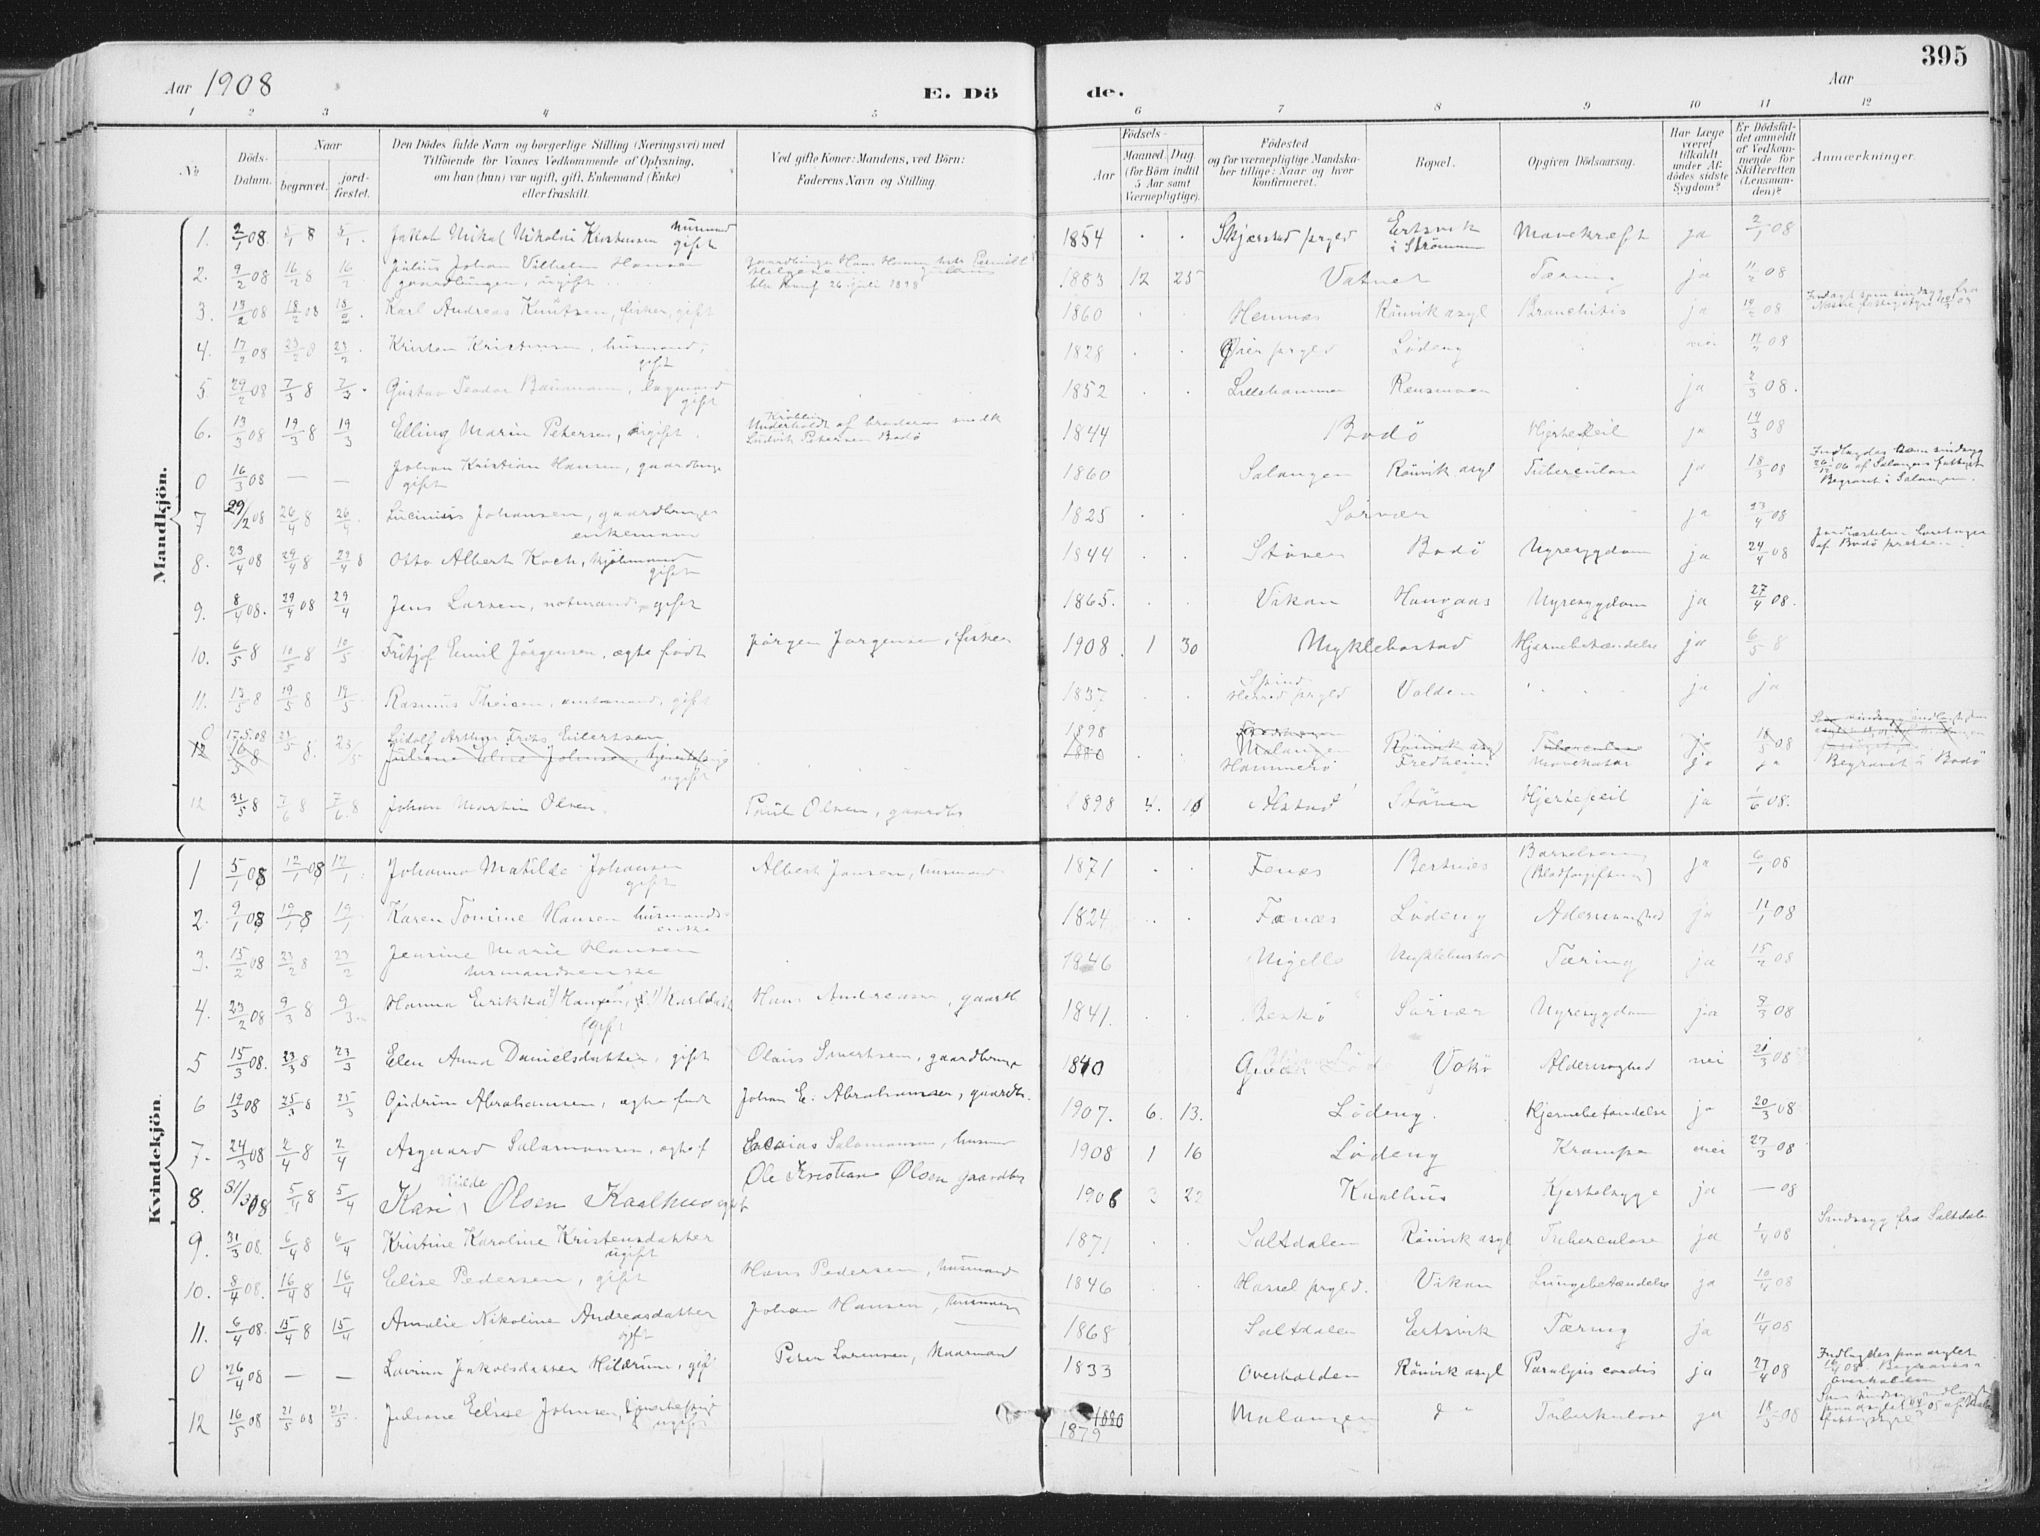 395
Aar 1908
E. Dö
de.
Aar
1 2 3 4 5 6 7 8 9 10 11 12
No
Döds-Datum.
Naar
begravet.
jord-fæstet.
Den Dödes fulde Navn og borgerlige Stilling (Næringsvei) med
Tilföiende for Voxnes Vedkommende af Oplysning,
om han (hun) var ugift, gift, Enkemand (Enke)
eller fraskilt.
Ved gifte Koner: Mandens, ved Börn:
Faderens Navn og Stilling.
Födsels-
Aar
Maaned.
Dag
(for Börn indtil
5 Aar samt
Værnepligtige).
Födested
og for værnepligtige Mandska-
ber tillige: Naar og hvor
konfirmeret.
Bopæl.
Opgiven Dödsaarsag.
Har Læge
været
tilkaldt
under Af-
dödes sidste
Sygdom?
Er Dödsfal-
det anmeldt
af Vedkom-
mende for
Skifteretten
(Lensman-
den)?
Anmærkninger.
Mandkjön.
1. 2/1 08 5/1 Jakob Mikal Nikolai Kristensen husmand gift 1854 Skjerstad prgld Ertsvik i Strömmen Mavekræft ja 2/1 08
2. 9/2 08 16/2 8 16/2 Julius Johan Vilhelm Hansen 1883 12 25 Vatnet Tæring ja 11/2 08
gaardbruger, ugift
3. 13/2 08 18/2 08 18/2 Karl Andreas Knutsen, fisker, gift 1860 Hemnæs Rönvik asyl Bronchitis ja 14/2 08
4. 17/2 08 23/2 8 23/2 Kristen Kristensen, husmand, gift 1828 Öier prgld Löding nei 17/2 08
5 29/2 08 7/3 8 7/3 Gustav Teodor Baumann, gift 1852 Lillehammer Rensmoen ja 2/3 08.
6. 13/3 08 19/3 8 19/3 Elling Marin Petersen, ugift Krøbling Underholdt af broderen snedk Ludvik Petersen Bodø 1844 Bodø Hjertefeil ja 14/3 08
0 16/3 08 — — Johan Kristian Hansen, gaardbruger gift 1860 Salangen Rönvik asyl Tuberculose ja 18/3 08 Begravet i Salangen.
7 29/2 08 26/4 8 26/4 Lucinius Johansen, gaardbruger enkemann 1825 Sörvær ja 23/4 08
8. 23/4 08 29/4 8 29/4 8 Otto Albert Koch, gift 1844 Stören Bodö Nyresygdom ja 24/4 08 af Bodö præsten.
9. 8/4 08. 29/4 08 29/4 Jens Larsen, notmand, gift 1865. Vikan Hongaas Nyresygdom ja 27/4 08.
10. 6/5 8 10/5 8 10/5 Fritjof Emil Jörgensen, ægte födt Jörgen Jorgensen, fisker 1908. 1 30 Myklebostad Hjernebetændelse ja 6/5 8
11. 13/5 8 19/5 8 19/5 Rasmus Theisen, gift 1837 Spind Herred prgld Valden ja ja
0 17.5.08 23/5 8. 23/5 Ludolf Arthur Frits Eilertsen 1898 Hammerö Fredheim ja ja Begravet i Bodö
12 16/5 8 Juliane Elise Johnsen, tjenestepige ugift 1880 Malangen Rönvik asyl Tuberculose ja 18/5 08
12 31/5 8 7/6 8 7/6 8 Johan Martin Olsen. Paul Olsen, gaardbr. 1898 4. 16 Alstad Stören Hjertefeil ja 1/6 08.
Kvindekjön.
1 5/1 08 12/1 08 12/1 Johanna Matilde Johansen gift Albert Jansen, husmand 1871 Fenæs Bertnes Barselseng (Blodforgiftning) ja 6/1 08
2. 9/1 08 19/1 8 19/1 Karen Tomine Hansen husmands-enke 1824 Fænæs Löding Aldersvaghed ja 11/1 08
3. 15/2 08 23/2 8 23/2 Jensine Marie Hansen husmandsenke 1846 Mjelle Myklebostad Tæring ja 15/2 08
4. 23/2 08 9/3 8 9/3 Hanna Eirikka gift Hans Andreassen, gaardb. 1841. Sörvær Nyresygdom ja 8/3 08
5 15/3 08. 23/3 8 23/3 Elen Anna Danielsdatter, gift Olaus Sivertsen, gaardbruger 1840 Vokö Aldersvaghed nei 21/3 08
6 19/3 08 25/3 8 25/3 Gudrun Abrahamsen, ægte født Johan E. Abrahamsen, gaardbr. 1907. 6. 13. Lödeng. Hjernebetændelse ja 20/3 08
7. 24/3 08 2/4 8 2/4 Asgaard Salamonsen, ægte f Salamonsen, husmd 1908 1 16 Lödeng Krampe nei 27/3 08
8. 31/3 08 5/4 8 5/4 Kari Hilde Olsen Kaalhus Ole Kristian Olsen gaardbr 1906 3 22 Kaalhus Kjertelsyge ja — 08
9. 31/3 08. 6/4 8 6/4 Kristine Karoline Kristensdatter ugift 1871 Saltdalen Rönvik asyl Tuberculose ja 1/4 08 Sindssyg fra Saltdalen
10. 8/4 08. 16/4 8 16/4 Elise Pedersen, gift Hans Pedersen, husmand 1846 Hassel prgld. Vikan Lungebetændelse ja 10/4 08
11. 6/4 08. 15/4 8 15/4 Amalie Nikoline Andreasdatter gift Johan Hansen, husmand 1868 Saltdalen Ertsvik Tæring ja 11/4 08
0 26/4 08 — — Lovina Jakobsdatter Hildrum, gift Peter Lorensen, Kaarmand 1833 Overhalden Rönvik asyl Paralysis cordis ja 27/4 08 Indlagdes paa asylet Begravet i Overhalden
12 16/5 08 21/5 08 21/5 Juliane Elise Johnsen, tjenestepige ugift 1880 1879 Malangen do Tuberkulose ja 18/5 08